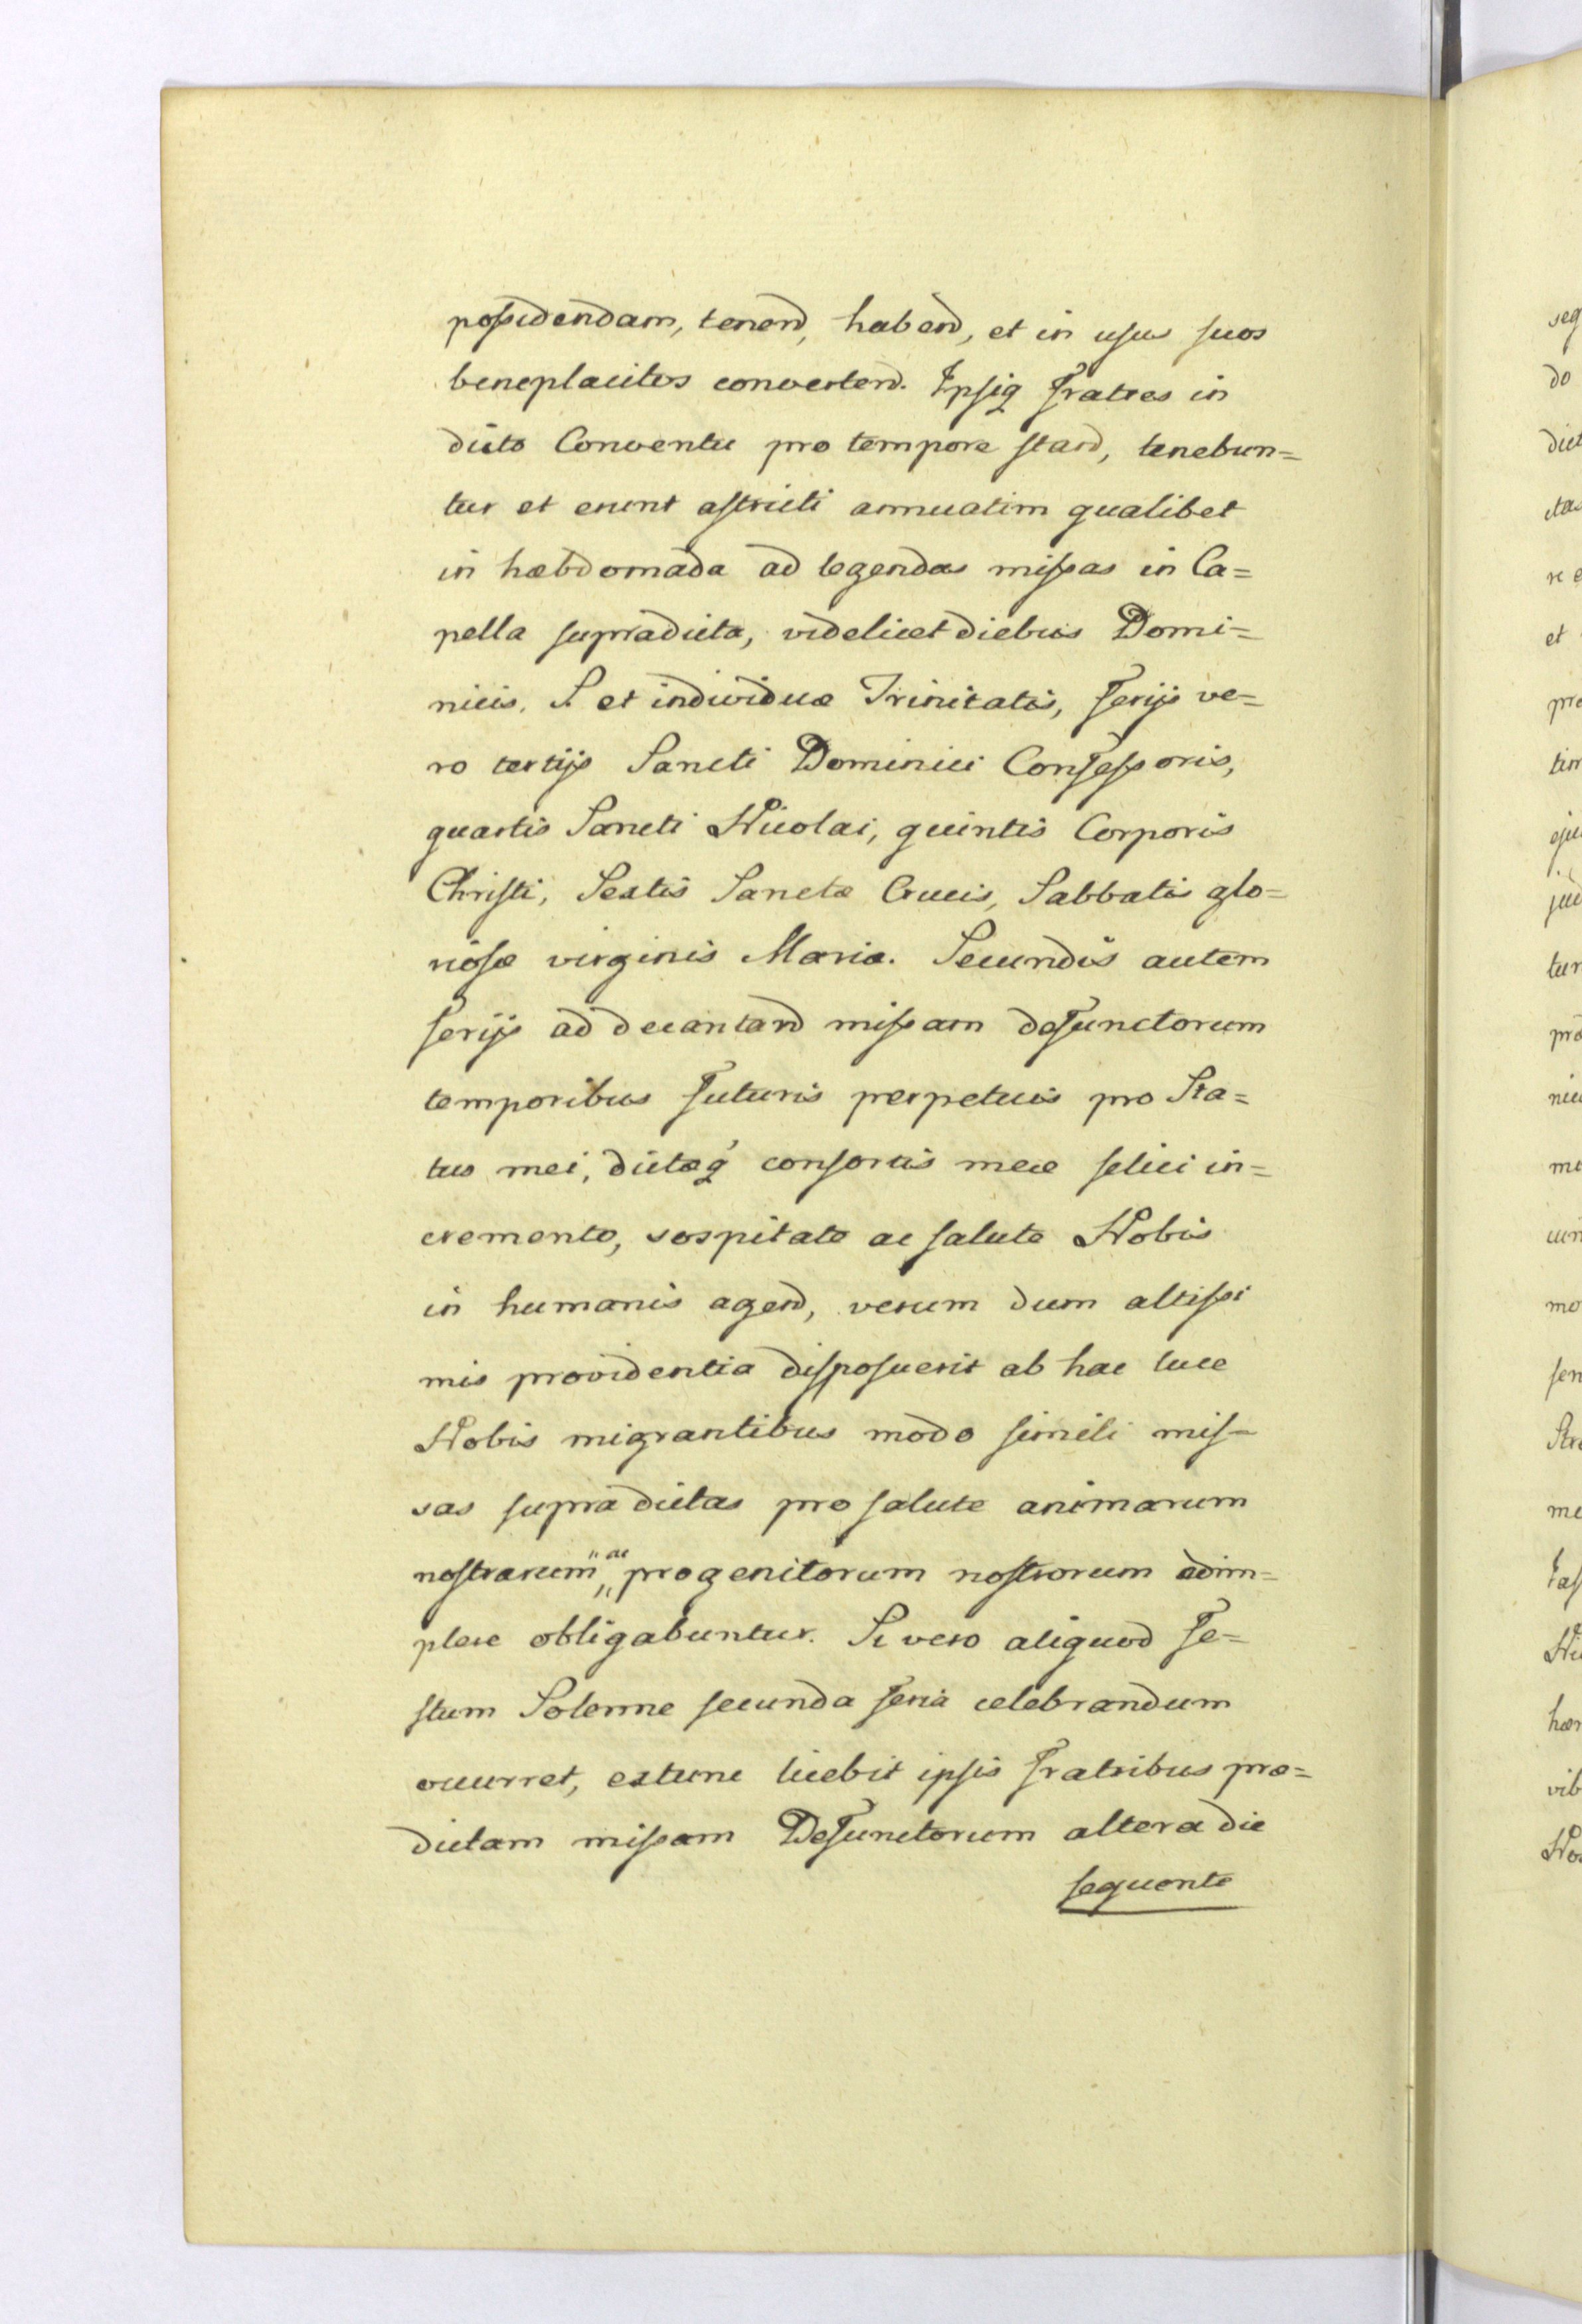 possidendam, tenend, habend, et in usus suos
beneplacitos convertend. Ipsiq fratres in
dicto Conventu pro tempore stand, tenebun=
tur et erunt astricti annuatim qualibet
in hæbdomada ad legendas missas in Ca=
pella supradicta, videlicet diebus Domi=
nicis. S. et individuæ Trinitatis, ferijs ve=
ro tertijs Sancti Dominici Confessoris,
quartis Sancti Nicolai, quintis Corporis
Christi, Sextis Sanctæ Crucis, Sabbatis glo=
riosæ virginis Mariæ. Secundis autem
ferijs ad decantand missam defunctorum
temporibus futuris perpetuis pro Sta=
tus mei, dictæq consortis meæ felici in=
cremento, sospitate ac salute Nobis
in humanis agend, verum dum altissi
mis providentia disposuerit ab hac luce
Nobis migrantibus modo simili mis=
sas supra dictas pro salute animarum
nostrarum ac progenitorum nostrorum adim=
plere obligabuntur. Si vero aliquod fe=
stum Solenne secunda feria celebrandum
occurret, extunc licebit ipsis fratribus præ=
dictam missam Defunctorum altera die
sequente